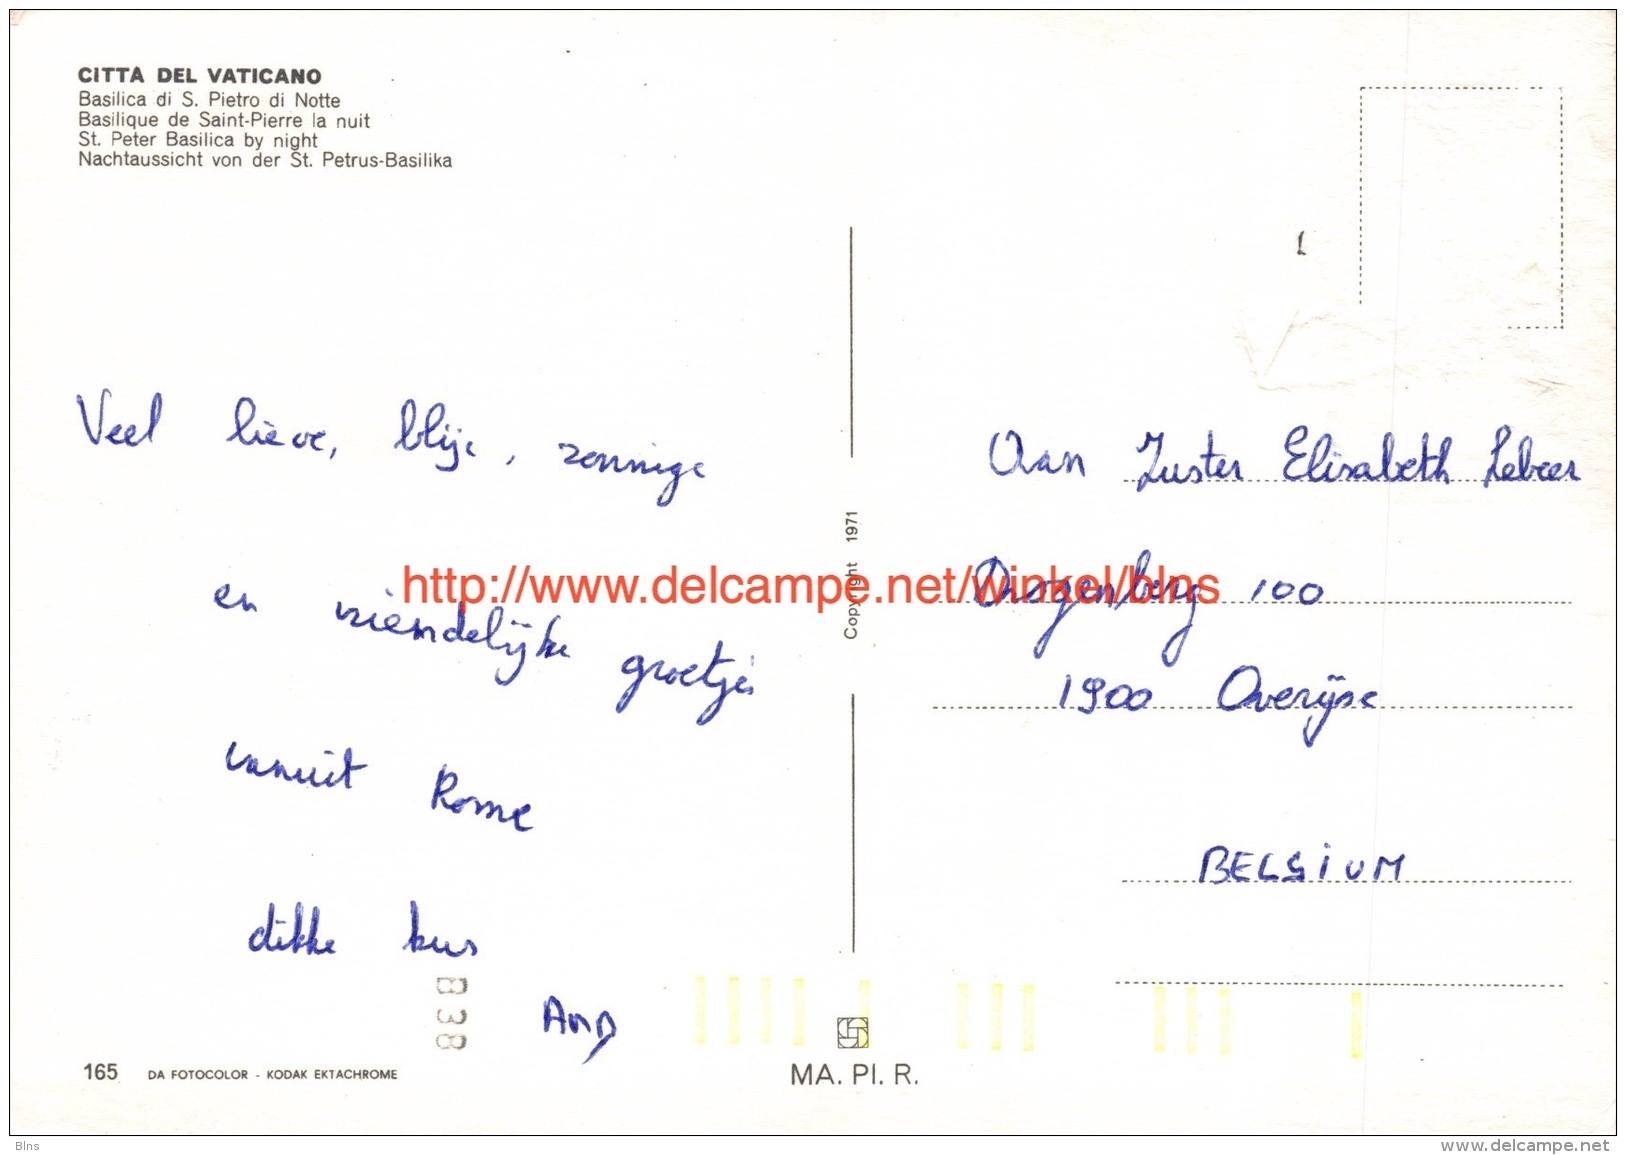 CITTA DEL VATICANO
Basilica di S. Pietro di Notte
Basilique de Saint-Pierre la nuit
St. Peter Basilica by night
Nachtaussicht von der St. Petrus-Basilika
Veel lieve, blije, zonnige
en vriendelijke groetjes
vanuit Rome
dikke kus
838
165 DA FOTOCOLOR - KODAK EKTACHROME
Copyright 1971
MA. PI. R.
Aan Zuster Elisabeth Lebeer
Drogenberg 100
1900 Overijse
BELGIUM
http://www.delcampe.net/winkel/blns
Blns
www.delcampe.net